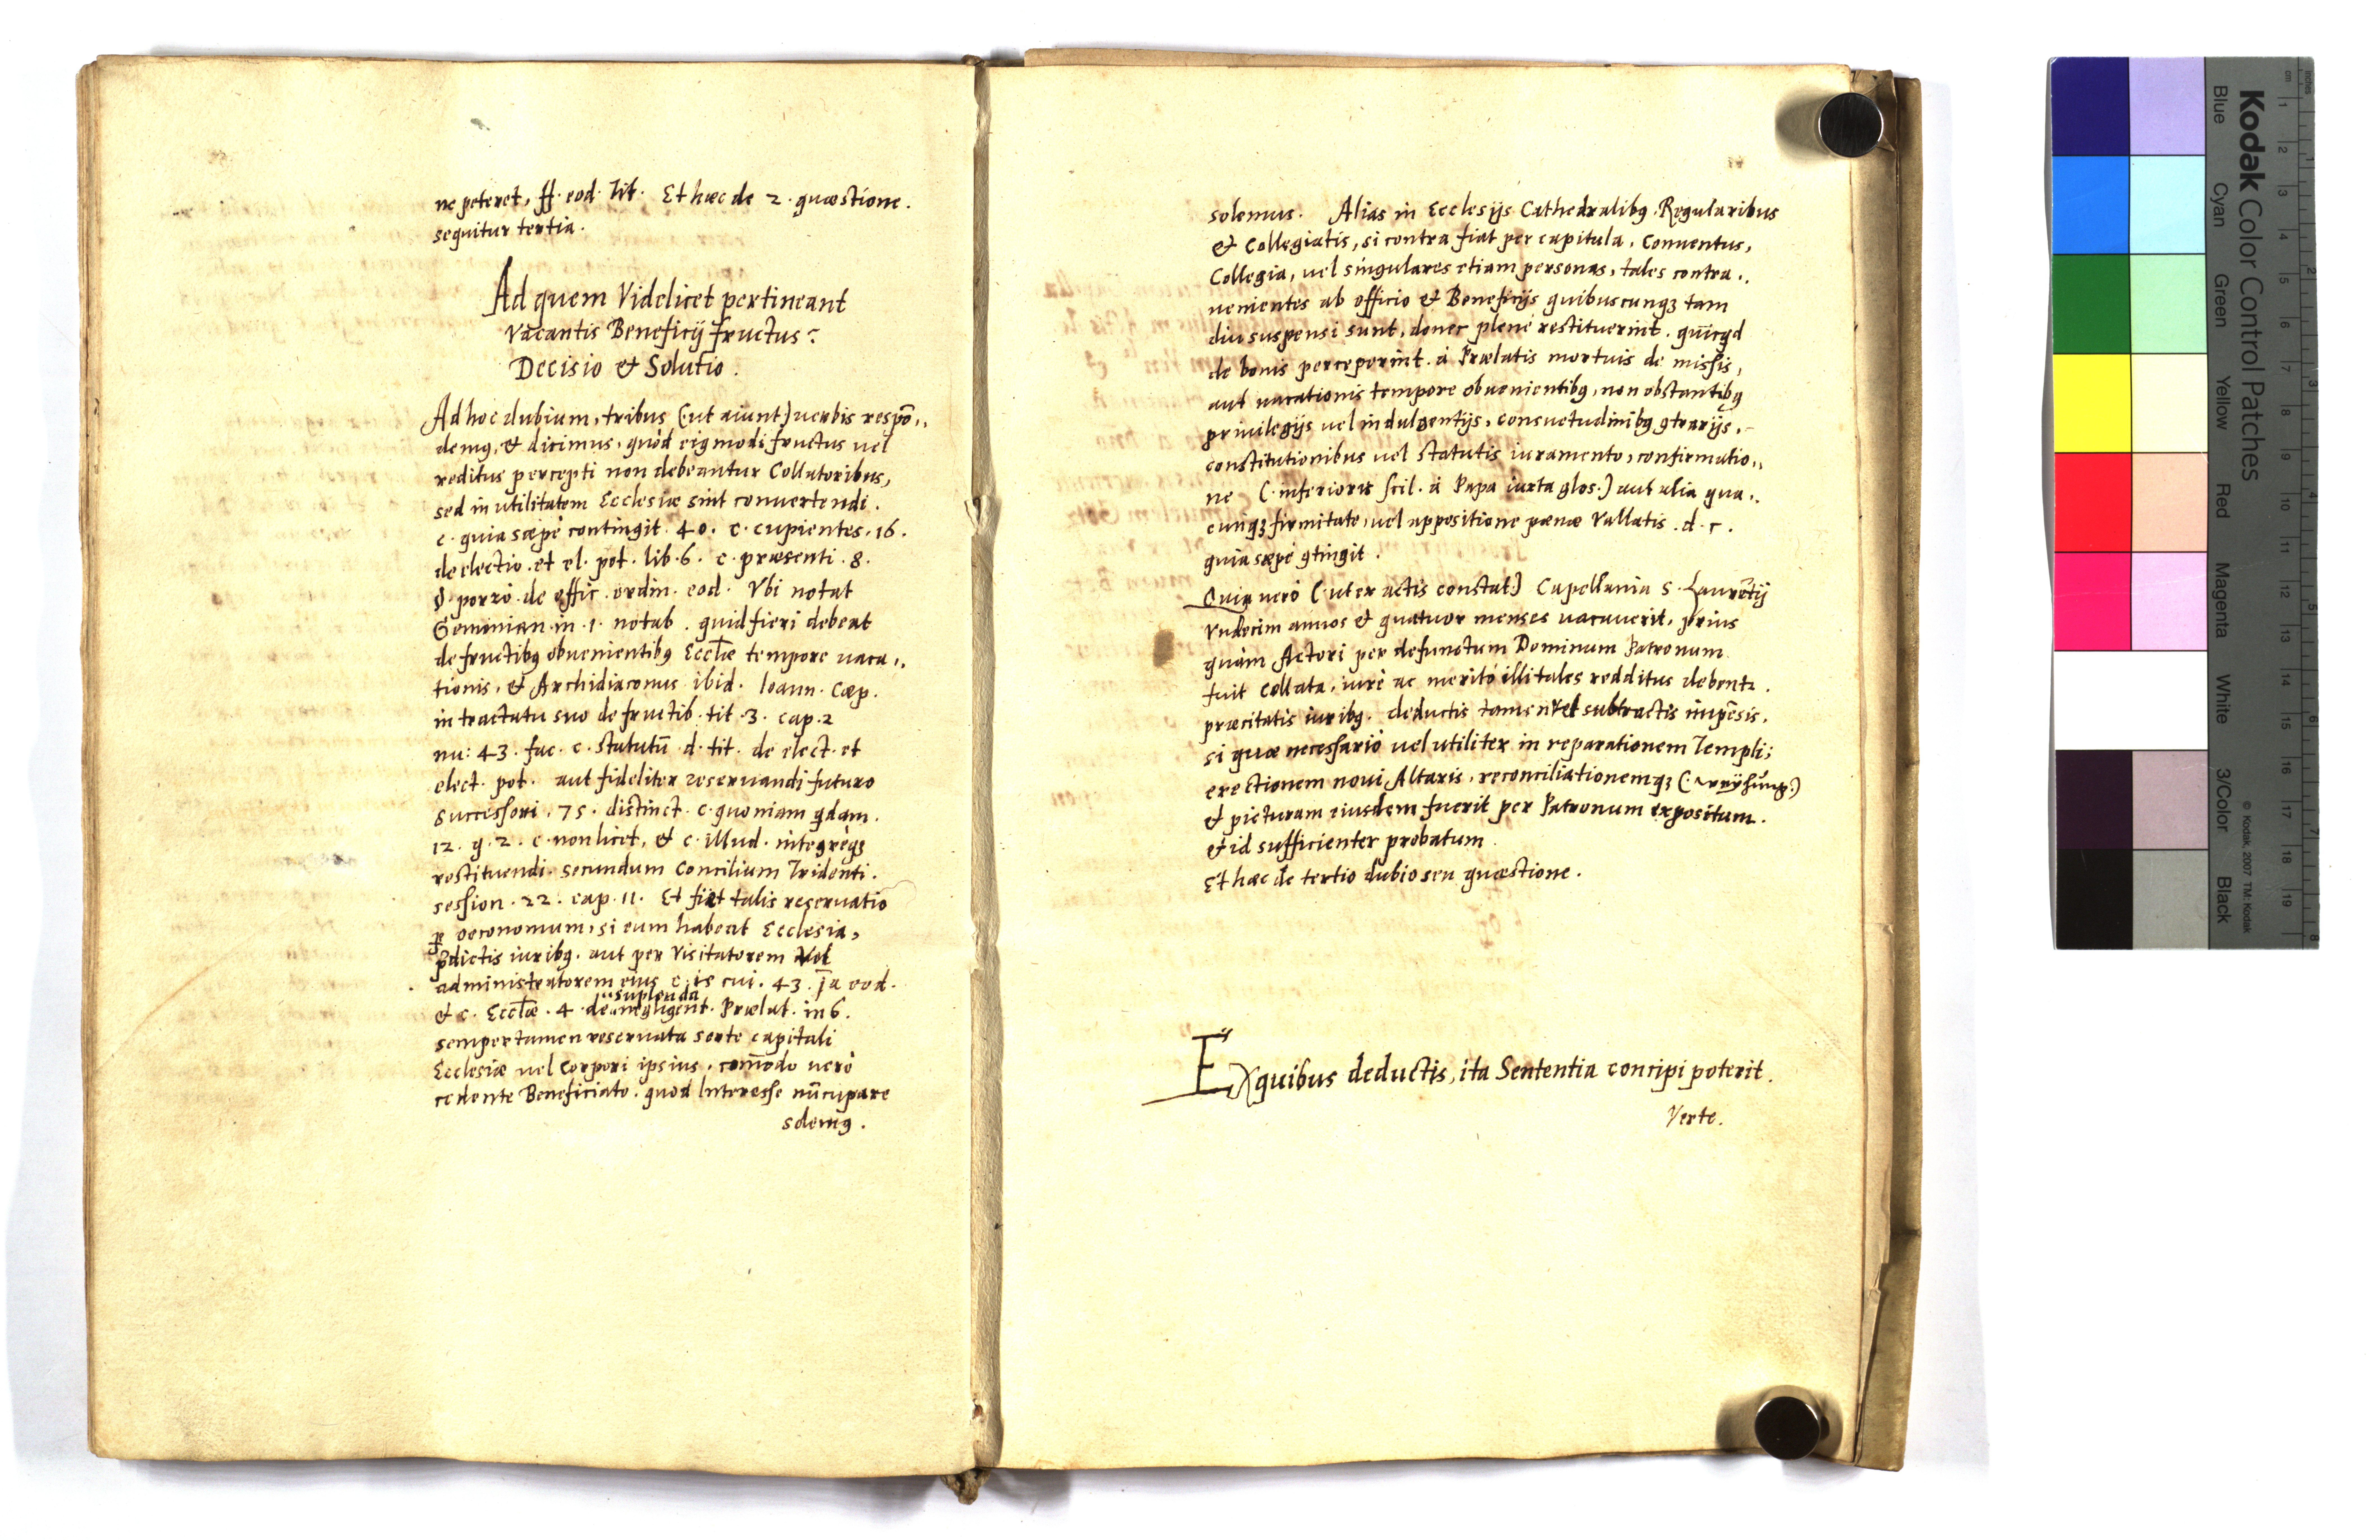 ne peteret, ff. eod. tit. Et hæc de 2. quæstione.
sequitur tertia.
Ad quem Videlicet pertineant
Vacantis Beneficij fructus?
Decisio & Solutio.
Ad hoc dubium, tribus (ut aiunt) uerbis respō,,
demꝰ, & dicimus, quòd eiꝰmodi fructus uel
reditus percepti non debeantur Collatoribus,
sed in utilitatem Ecclesiæ sint conuertendi.
c. quia sæpè contingit. 40. c. cupientes. 16.
de electio. et el. pot. lib. 6. c. præsenti. 8.
§. porrò. de offic. ordin. eod. Vbi notat
Geminian. in. 1. notab. quid fieri debeat
de fructibꝰ obuenientibꝰ Eccl̄æ tempore uaca,,
tionis, & Archidiaconus ibid. Ioann. Cæp.
in tractatu suo de fructib. tit. 3. cap. 2
nu: 43. fac. c. statutū d. tit. de elect. et
elect. pot. aut fideliter reseruandi futuro
successori. 75. distinct. c. quoniam qdam.
12. q. 2. c. non licet, & c. illud. integrèqꝫ
restituendi. secundum Concilium Tridenti.
session. 22. cap. 11. Et fiet talis reseruatio
ꝑ oeconomum, si eum habeat Ecclesia,
p̄dictis iuribꝰ. aut per Visitatorem Vel
administratorem eius c. is cui. 43. j̄a eod.
& c. Eccl̄æ. 4. de ,,suplenda,, negligent. Prælat. in 6.
semper tamen reseruata sorte capitali
Ecclesiæ uel Corpori ipsius. com̄odo uerò
cedente Beneficiato. quod Interesse nūcupare
solemꝰ.
solemus. Alias in Ecclesijs Cathedralibꝰ, Regularibus
& Collegiatis, si contra fiat per capitula, Conuentus,
Collegia, uel singulares etiam personas, tales contra,,
uenientes ab officio & Beneficijs quibuscunqꝫ tam
diu suspensi sunt, donec plenè restituerint. quicqd
de bonis perceperint. à Prælatis mortuis de missis,
aut uacationis tempore obuenientibꝰ, non obstantibꝰ
priuilegijs uel indulgentijs, consuetudinibꝰ ꝯtrarijs,
constitutionibus uel statutis iuramento, confirmatio,,
ne (: inferioris scil. à Papa iuxta glos:) aut alia qua,,
cunqꝫ firmitate, uel appositione pœnæ Vallatis. d. c.
quia sæpè ꝯtingit.
Quia uerò (: ut ex actis constat) Capellania S. Laurētij
Vndecim annos & quatuor menses uacauerit, prius
quàm Actori per defunctum Dominum Patronum
fuit collata, iurè ac meritò illi tales redditus debent.
præcitatis iuribꝰ. deductis tamen Vel subtractis impēsis.
si quæ necessariò uel utiliter in reparationem Templi;
erectionem noui Altaris, reconciliationemqꝫ (: weÿhung:)
& picturam eiusdem fuerit per Patronum expositum.
& id sufficienter probatum.
Et hæc de tertio dubio seu quæstione.
Ex quibus deductis, ita Sententia concipi poterit.
Verte.
Kodak Color Control Patches
Blue Cyan Green Yellow Red Magenta White 3/Color Black
© Kodak, 2007 TM: Kodak